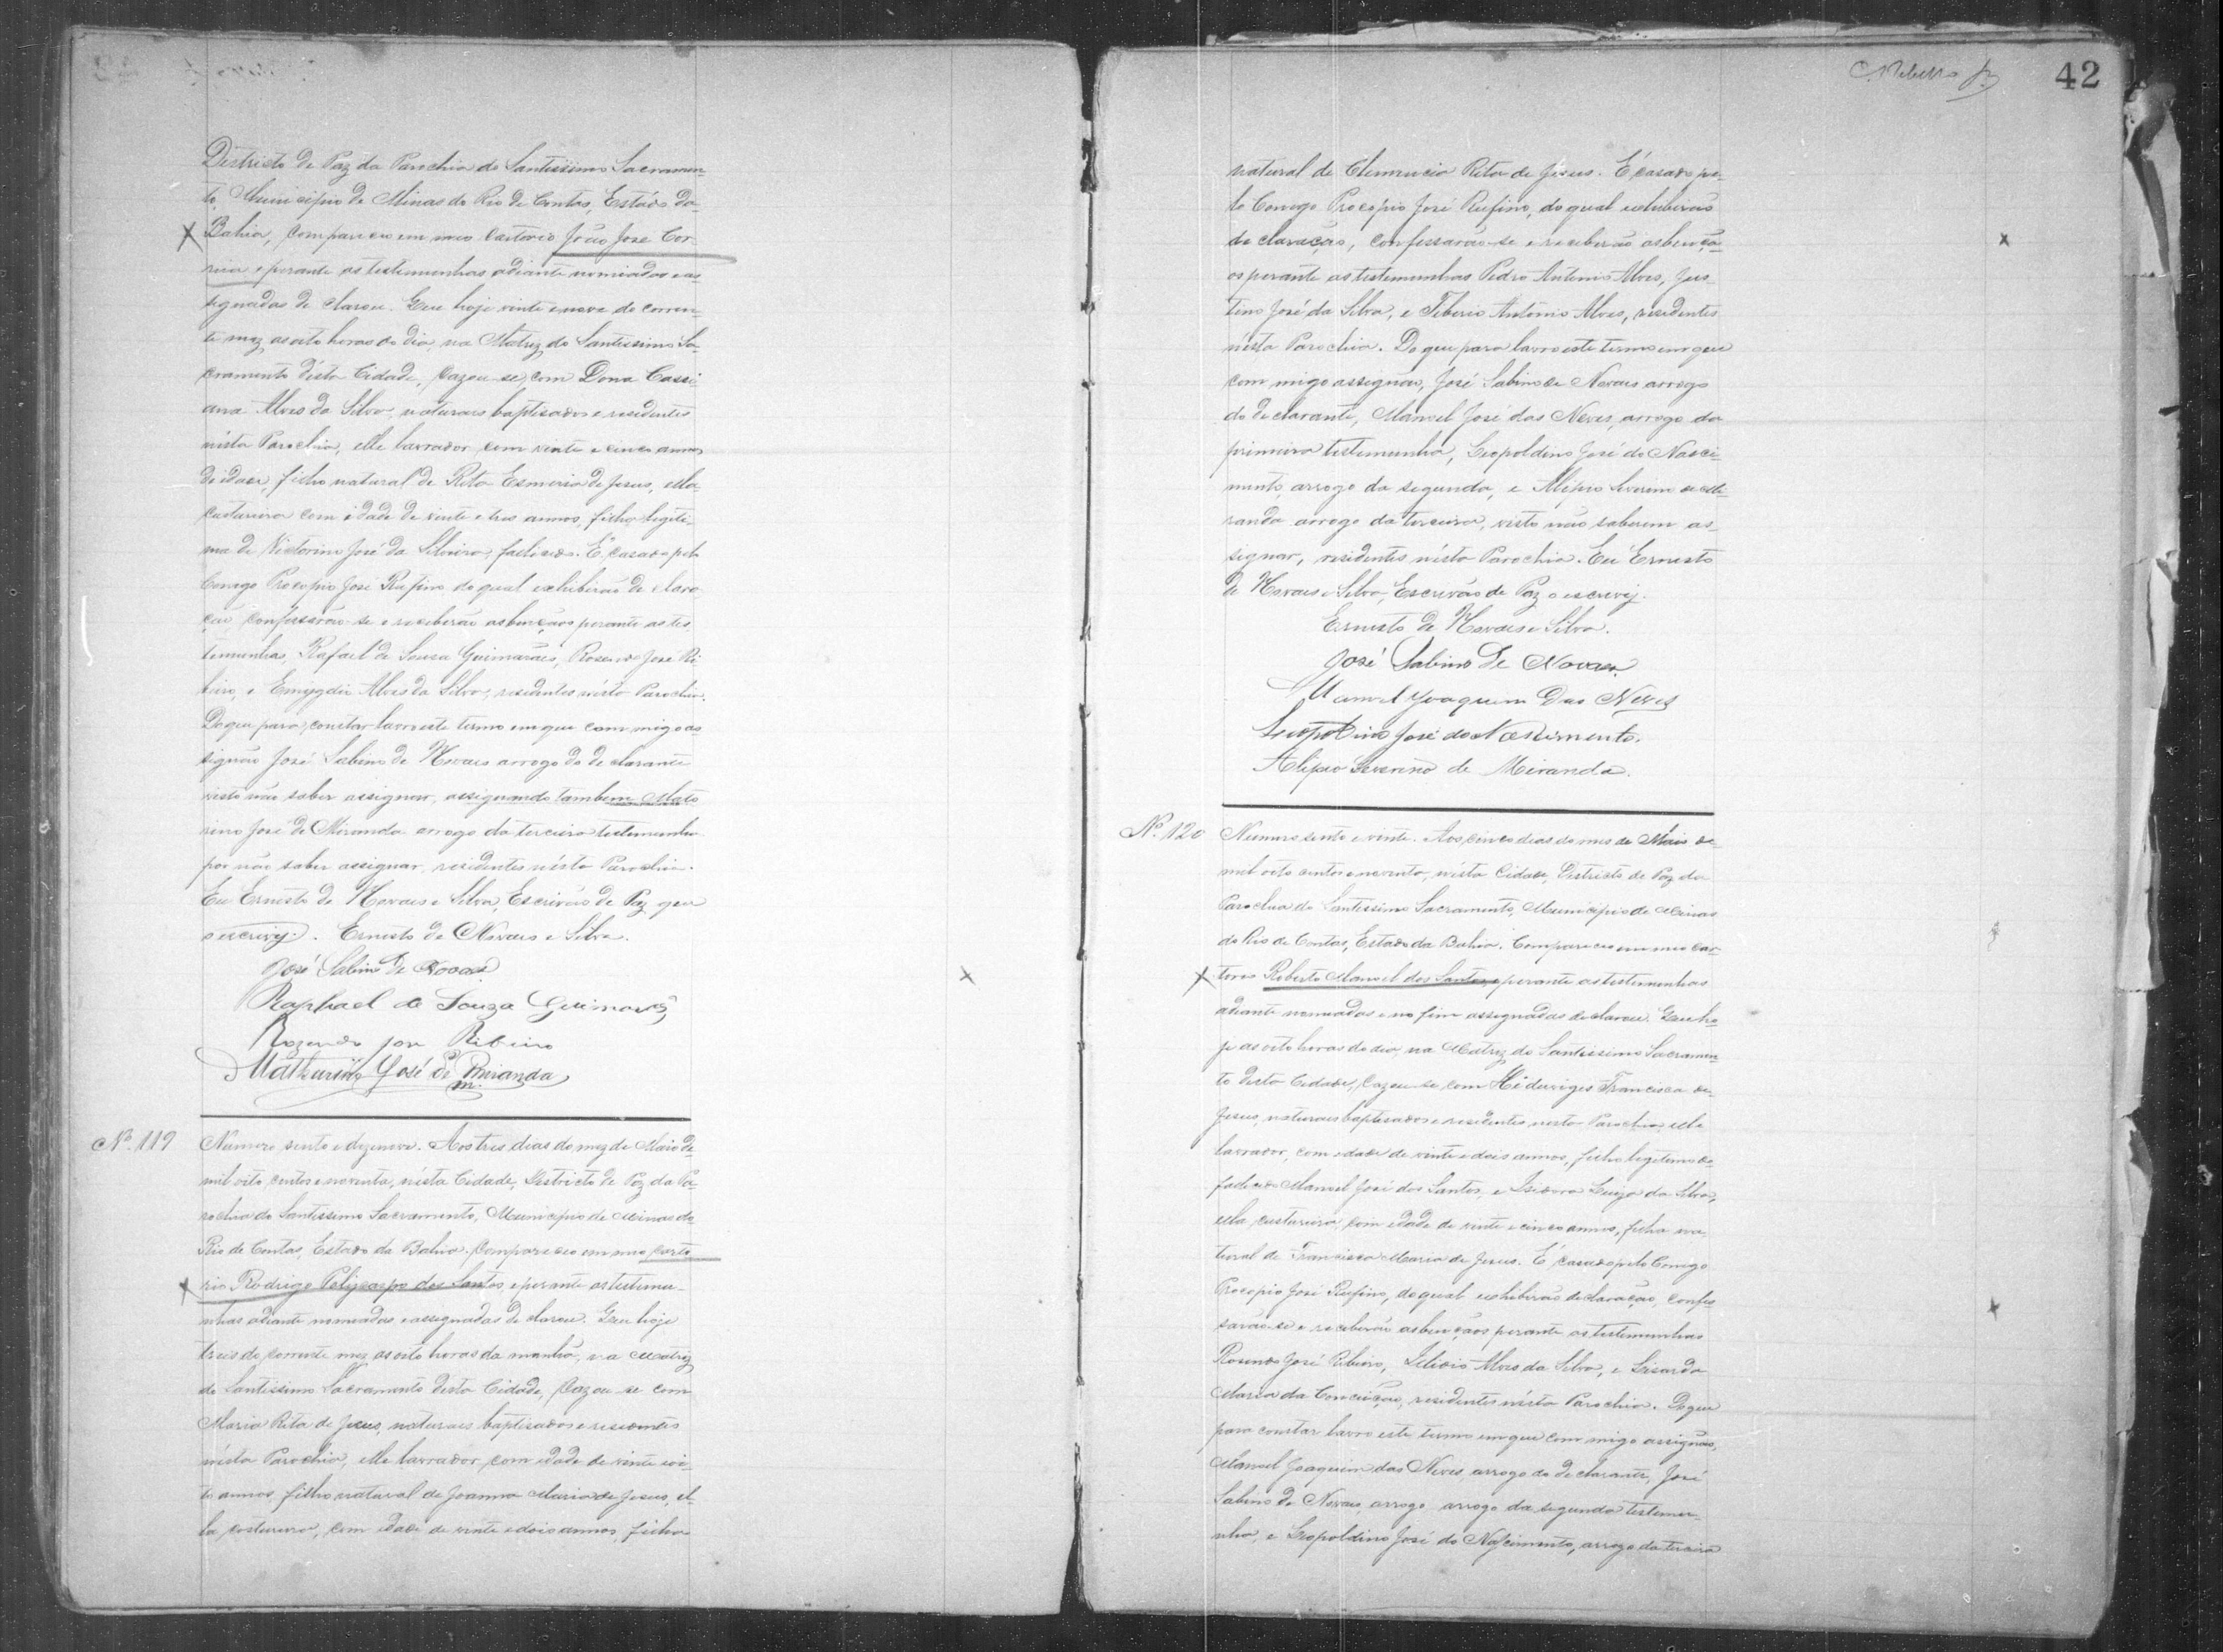 Districto de Paz da Parochia do Santissimo Sacramen-
to, Municipio de Minas do Rio de Contas, Estado da
Bahia, compareceu em meu Cartorio João José Cor-
reia e perante as testemunhas adiante nomiadas e as-
signadas declarou. Que hoje vinte e nove do corren-
te mez as oito horas do dia, na Matriz do Santissimo Sa-
cramento désta Cidade, Cazou-se com Dona Cassi-
ana Alves da Silva, naturaes baptisados e residentes
nésta Parochia, elle lavrador com vinte e cinco annos
de idade, filho natural de Rita Esmeria de Jesus, ella
custureira com idade de vinte e tres annos, filha legiti-
ma de Victorino José da Silveira, fallecido. É casado pelo
Conego Procopio José Rufino do qual exhibirão declara-
ção confessarão-se e receberão as bençãos perante as tes
temunhas, Rafael de Souza Guimarães, Rosendo José Ri-
beiro, e Emygdio Alves da Silva, residentes nésta Parochia.
Do que para constar lavro este termo em que commigo as-
signão José Sabino de Novaes arrogo do declarante
visto não saber assignar, assignando tambem Matu
rino José de Miranda arrogo da terceira testemunha
por não saber assignar, residentes nésta Parochia.
Eu Ernesto de Novaes e Silva, Escrivão de Paz que
o escrevy. Ernesto de Novaes e Silva.
José Sabino de Novaes
Raphael de Souza Guimarães
Rozendo José Ribeiro
Mathurino José de Miranda
Nº 119
Numero sento e dezenove. Aos tres dias do mez de Maio de
mil oito centos e noventa, nésta Cidade, Districto de Paz da Pa-
rochia do Santissimo Sacramento, Municipio de Minas do
Rio de Contas, Estado da Bahia. Compareceo em meu Carto
rio Rodrigo Polycarpo dos Santos, e perante as testemu-
nhas adiante nomeadas e assignadas declarou. Que hoje
tres do corrente mez, as oito horas da manhã, na Matriz
do Santissimo Sacramento desta Cidade, Cazou-se com
Maria Rita de Jesus, naturaes baptisados e residentes
nésta Parochia, elle lavrador, com idade de vinte e oi-
to annos, filho natural de Joanna Maria de Jesus, el-
la costureira, com idade de vinte e dois annos, filha
42
natural de Clemencia Rita de Jesus. É casado pe-
lo Conego Procopio José Rufino, do qual exhiberão
declaração, confessarão-se e receberão as bença-
os perante as testemunhas Pedro Antonio Alves, Jus-
tino José da Silva, e Tiberio Antonio Alves, residentes
nésta Parochia. Do que para lavro este termo em que
com migo assignão, José Sabino de Novaes arrogo
do declarante, Manoel José das Neves, arrogo da
primeira testemunha, Leopoldino José do Nasci-
mento, arrogo da segunda, e Alipio Severino de Mi-
randa arrogo da terceira, visto não saberem as-
signar, residentes nésta Parochia. Eu Ernesto
de Novaes e Silva, Escrivão de Paz o escrevy.
Ernesto de Novaes e Silva.
José Sabino de Novaes.
Manoel Joaquim das Neves
Leopoldino José do Nascimento.
Alipio Severino de Miranda.
Nº 120
Numero sento e vinte. Aos cinco dias do mes de Maio de
mil oito centos e noventa, nésta Cidade, Districto de Paz da
Parochia do Santissimo Sacramento, Municipio de Minas
do Rio de Contas, Estado da Bahia. Compareceo em meu Car
torio Roberto Manoel dos Santos, e perante as testemunhas
adiante nomeadas e no fim assignadas declarou. Que ho-
je as oito horas do dia, na Matriz do Santissimo Sacramen-
to desta Cidade, Cazou-se com Hiduviges Francisca de
Jesus, naturaes baptisados e residentes nesta Parochia, elle
lavrador, com idade de vinte e dois annos, filho legitimo de
fallecido Manoel José dos Santos, e Isidora Luiza da Silva,
ella custureira com idade de vinte e cinco annos, filha na
tural de Francisca Maria de Jesus. É casado pelo Conego
Procopio José Rufino, do qual exhiberão declaração, confes
sarão-se e receberão as bençãos perante as testemunhas
Rosendo José Ribeiro, Alves da Silva, e
Maria da Conceição, residentes nésta Parochia. Do que
para constar lavro este termo em que com migo assignão,
Manoel Joaquim das Neves arrogo do declarante, José
Sabino de Novaes, arrogo arrogo da segunda testemu-
nha, e Leopoldino José do Nascimento, arrogo da terceira